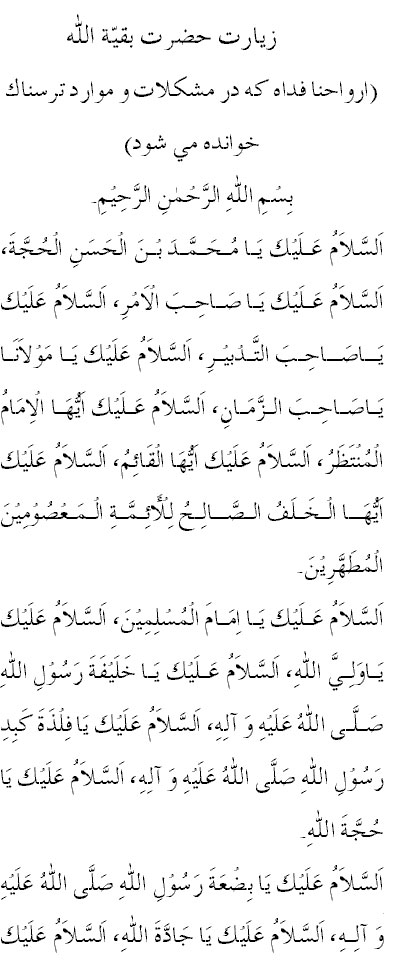 زيارت حضرت بقيّة الله
(ارواحنا فداه كه در مشكلات و موارد ترسناك
خوانده مي شود)
بِسْمِ اللهِ الرَّحْمٰنِ الرَّحِيْمِ۔
اَلسَّلاَمُ عَلَيْكَ يَا مُحَمَّدَ بْنَ الْحَسَنِ الْحُجَّةَ،
اَلسَّلاَمُ عَلَيْكَ يَا صَاحِبَ الْاَمْرِ، اَلسَّلاَمُ عَلَيْكَ
يَاصَاحِبَ التَّدْبِيْرِ، اَلسَّلاَمُ عَلَيْكَ يَا مَوْلاَنَا
يَاصَاحِبَ الزَّمَانِ، اَلسَّلاَمُ عَلَيْكَ اَيُّهَا الْاِمَامُ
الْمُنْتَظَرُ، اَلسَّلاَمُ عَلَيْكَ اَيُّهَا الْقَائِمُ، اَلسَّلاَمُ عَلَيْكَ
اَيُّهَا الْخَلَفُ الصَّالِحُ لِلْأَئِمَّةِ الْمَعْصُوْمِيْنَ
الْمُطَهَّرِيْنَ۔
اَلسَّلاَمُ عَلَيْكَ يَا اِمَامَ الْمُسْلِمِيْنَ، اَلسَّلاَمُ عَلَيْكَ
يَاوَلِيَّ اللهِ، اَلسَّلاَمُ عَلَيْكَ يَا خَلِيْفَةَ رَسُوْلِ اللهِ
صَلَّى اللهُ عَلَيْهِ وَ آلِهِ، اَلسَّلاَمُ عَلَيْكَ يَا فِلْذَةَ كَبِدِ
رَسُوْلِ اللهِ صَلَّى اللهُ عَلَيْهِ وَ آلِهِ، اَلسَّلاَمُ عَلَيْكَ يَا
حُجَّةَ اللهِ۔
اَلسَّلاَمُ عَلَيْكَ يَا بِضْعَةَ رَسُوْلِ اللهِ صَلَّى اللهُ عَلَيْهِ
وَ آلِهِ، اَلسَّلاَمُ عَلَيْكَ يَا جَادَّةَ اللهِ، اَلسَّلاَمُ عَلَيْكَ